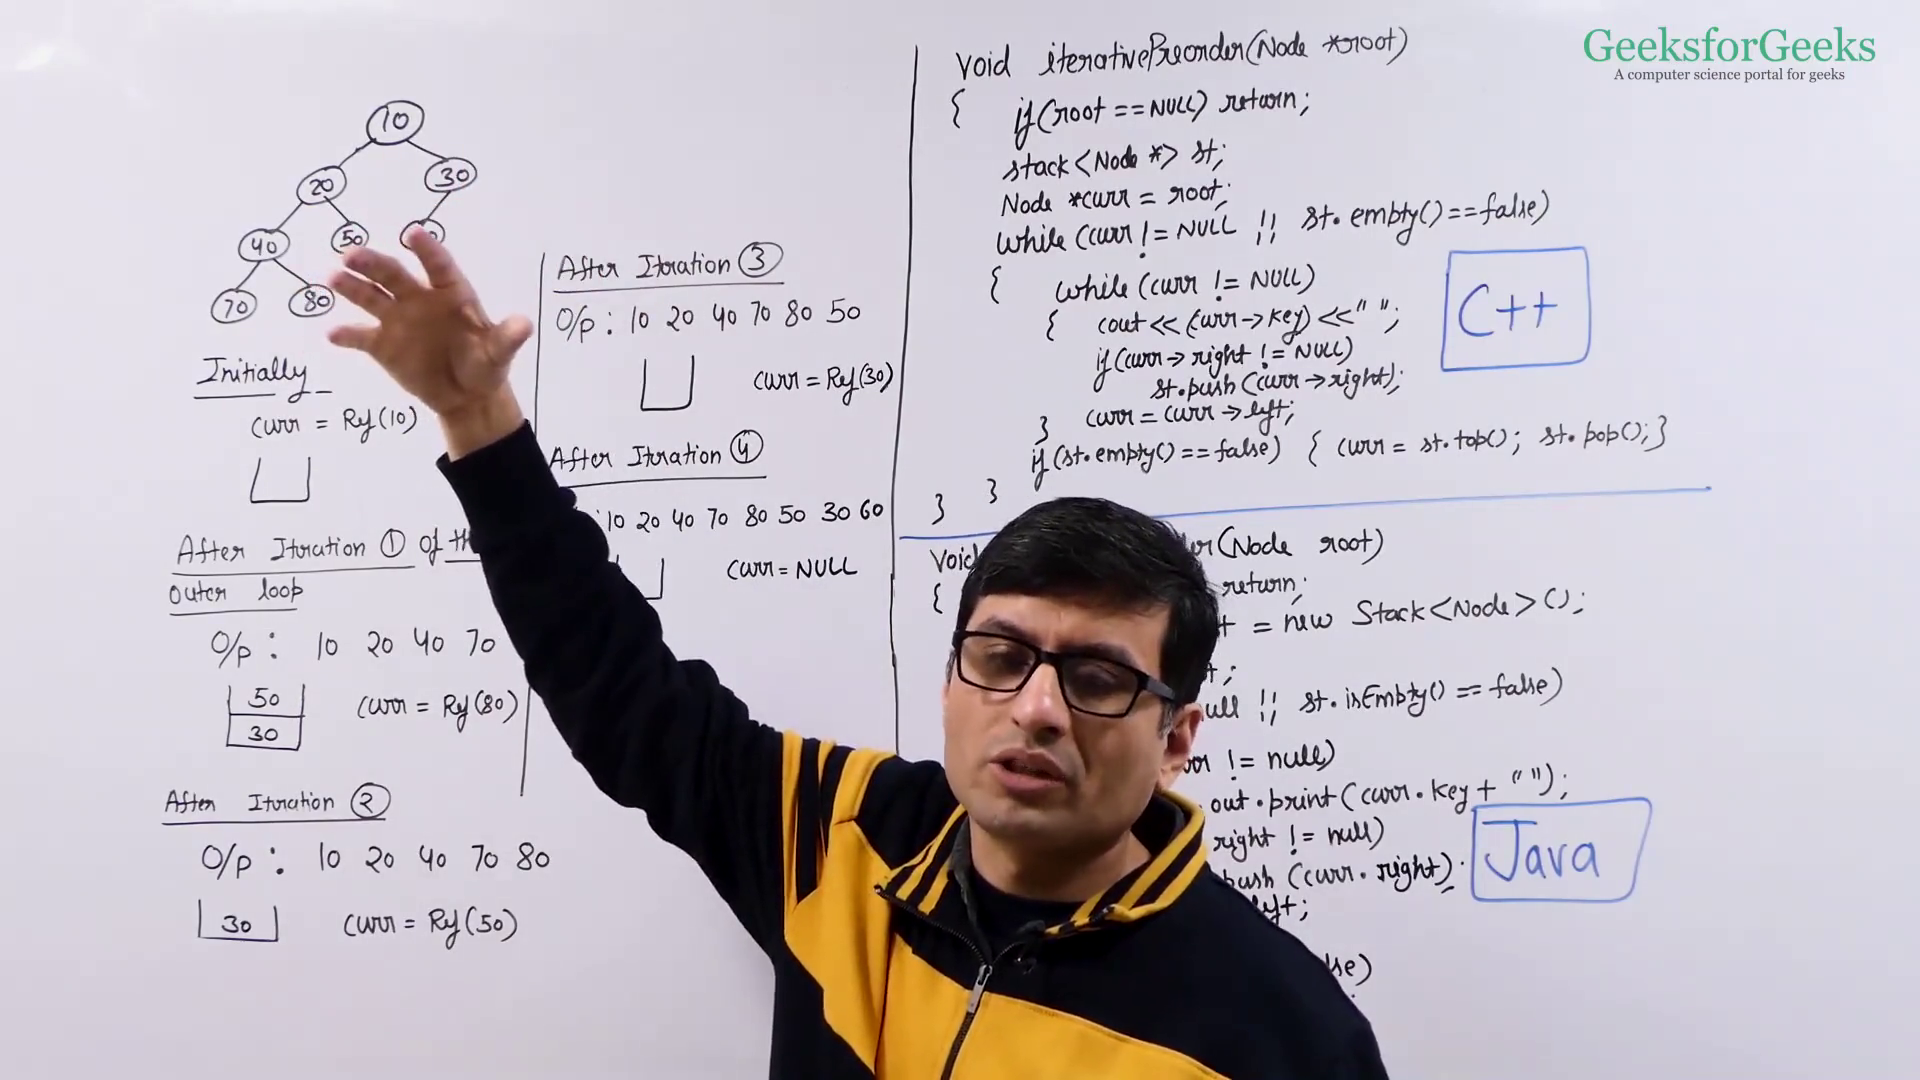 GeeksforGeeks
A computer science portal for geeks
10
20
30
40
50
70
80
Initially
curr = Ref(10)
After Itration 1 of
outer loop
O/p : 10 20 40 70
50
30
curr = Ref(80)
After Itration 2
O/p : 10 20 40 70 80
30
curr = Ref(50)
After Itration 3
O/p : 10 20 40 70 80 50
curr = Ref(30)
After Itration 4
10 20 40 70 80 50 30 60
curr = NULL
void iterativePreorder(Node *root)
{ if(root == NULL) return;
stack<Node *> st;
Node *curr = root;
while (curr != NULL || st.empty() == false)
{ while (curr != NULL)
{ cout << (curr->key) << " ";
if(curr->right != NULL)
st.push(curr->right);
curr = curr->left;
}
if(st.empty() == false) { curr = st.top(); st.pop(); }
} }
C++
void (Node root)
{ return;
= new Stack<Node>();
|| st.isEmpty() == false)
!= null)
out.print(curr.key + " ");
right != null)
(curr.right);
Java